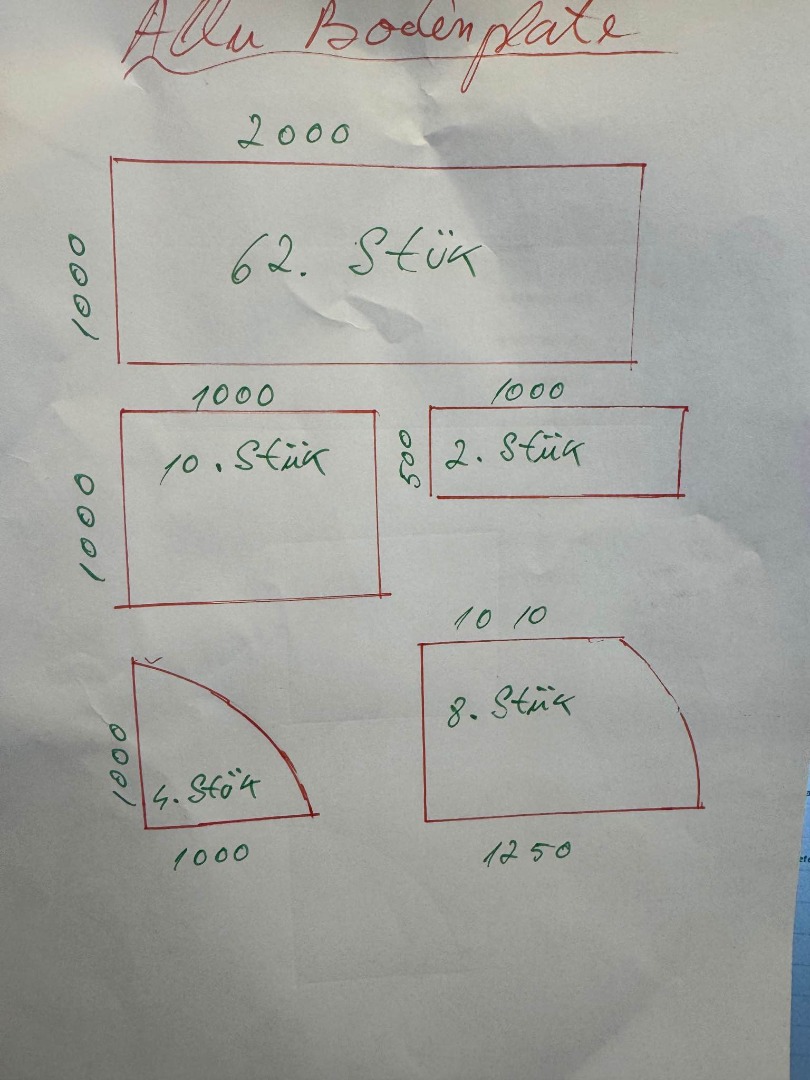 Allu Bodenplate
2000
1000
62. Stük
1000
1000
10. Stük
1000
500
2. Stük
1000
4. Stök
1000
10 10
8. Stük
1250